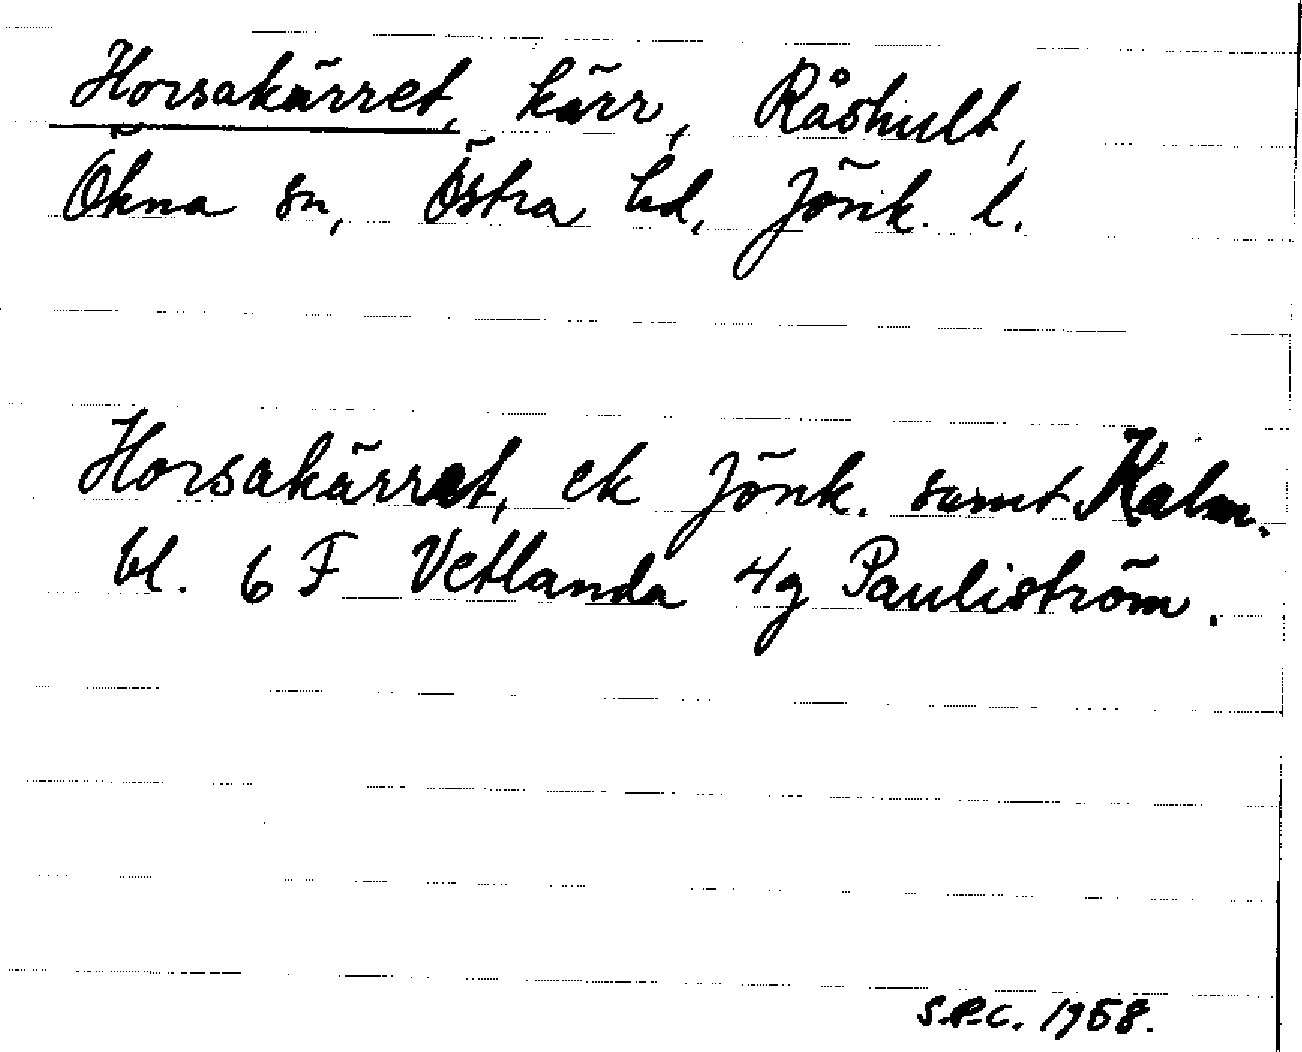 Horsakärret, kärr, Råshult,
Ökna sn, Östra hd, Jönk. l.
Horsakärret, ek Jönk. samt Kalm.
bl. 6 F Vetlanda 4g Pauliström.
S.P.C. 1958.